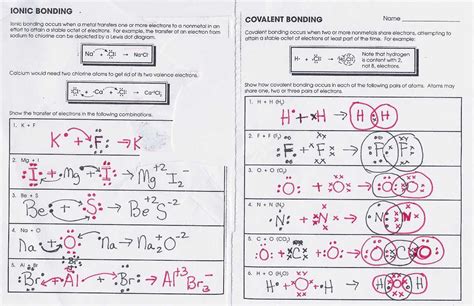 IONIC BONDING
Ionic bonding occurs when a metal transfers one or more electrons to a nonmetal in an
effort to attain a stable octet of electrons. For example, the transfer of an electron from
sodium to chlorine can be depicted by a Lewis dot diagram.
Calcium would need two chlorine atoms to get rid of its two valence electrons.
Show the transfer of electrons in the following combinations.
1. K + F
K + F → K
2. Mg + I
I + Mg + I → Mg+2 I2-
3. Be + S
Be + S → Be+2 S-2
4. Na + O
Na + O → Na2O-2
5. Al + Br
Br
Br + Al + Br → Al+3 Br3-
COVALENT BONDING
Name
Covalent bonding occurs when two or more nonmetals share electrons, attempting to
attain a stable octet of electrons at least part of the time. For example:
Note that hydrogen
is content with 2,
not 8, electrons.
Show how covalent bonding occurs in each of the following pairs of atoms. Atoms may
share one, two or three pairs of electrons.
1. H + H (H2)
H + H → H H
2. F + F (F2)
F + F → F F
3. O + O (O2)
O + O → O O
4. N + N (N2)
N + N → N N
5. C + O (CO2)
O + C + O → O C O
6. H + O (H2O)
H + O + H → H O H